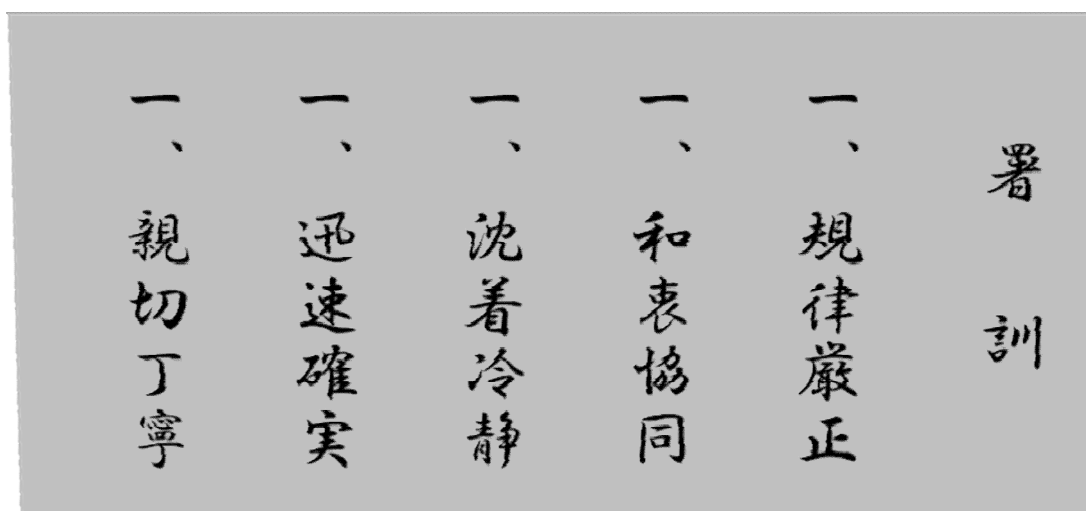 署訓
一、規律厳正
一、和衷協同
一、沈着冷静
一、迅速確実
一、親切丁寧